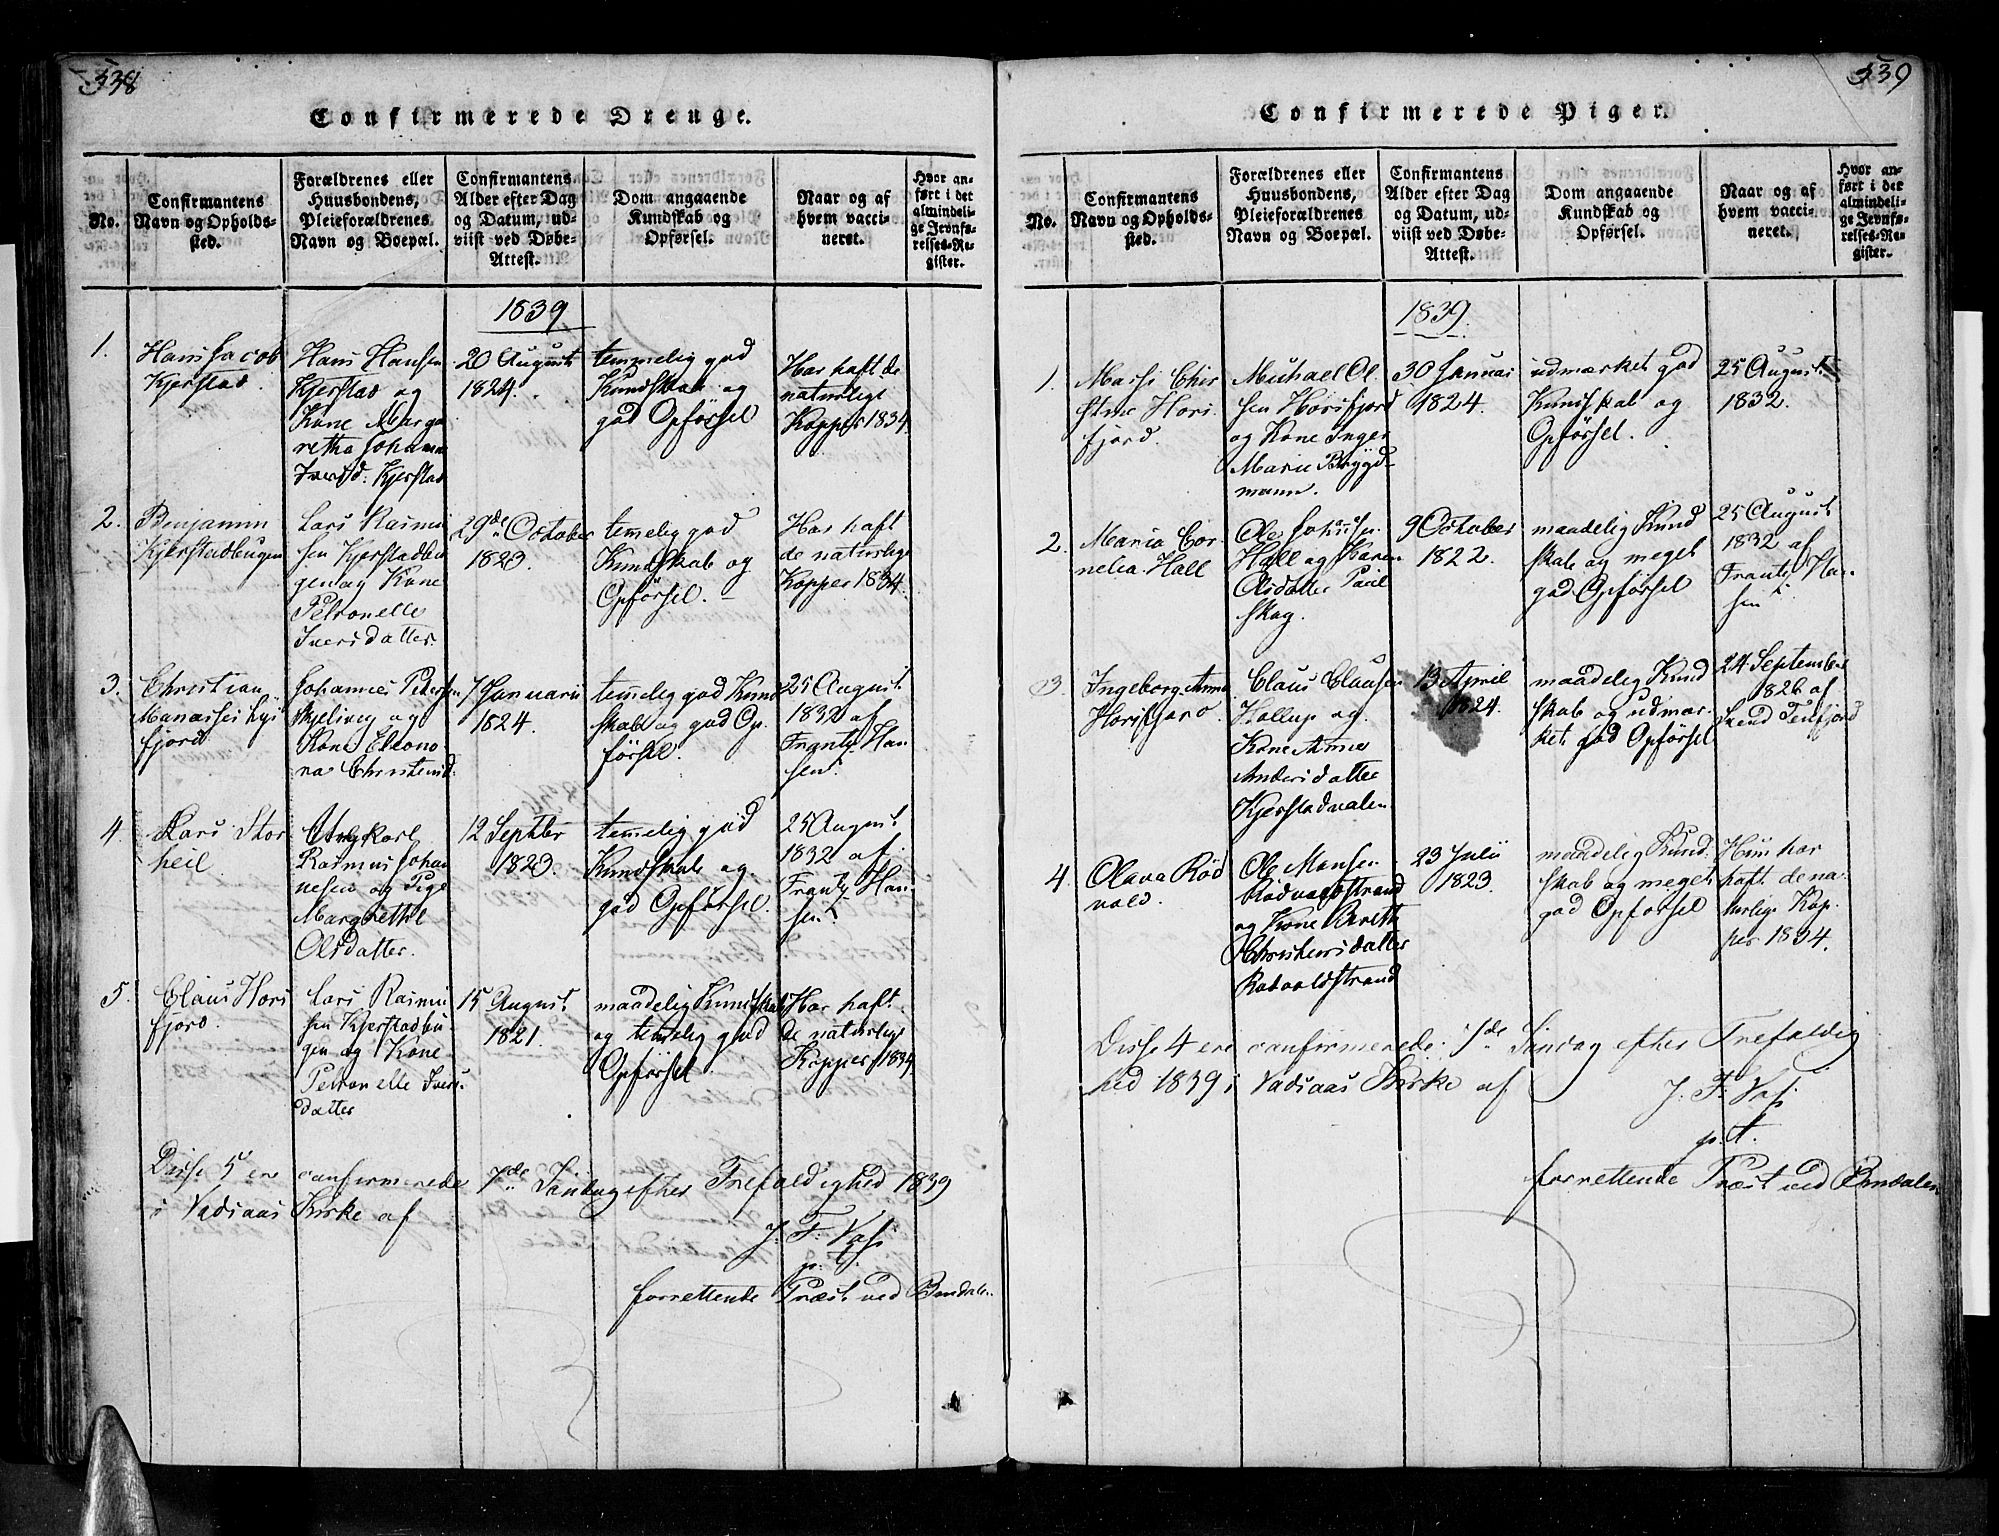 338
Confirmerede Drenge.
No.
Confirmantens
Navn og Opholds-
sted.
Forældrenes eller
Huusbondens,
Pleieforældrenes
Navn og Boepæl.
Confirmantens
Alder efter Dag
og Datum, ud-
viist ved Døbe-
Attest.
Dom angaaende
Kundskab og
Opførsel.
Naar og af
hvem vacci-
neret.
Hvor an-
ført i det
almindeli-
ge Jevnfø-
relses-Re-
gister.
1839
1.
Hans Jacob
Kjerstad.
Hans Hansen
Kjerstad og
Kone Marga
retha Johanna
Iversd: Kjerstad
20 August
1824.
temmelig god
Kundskab og
god Opførsel
Har haft de
naturlige
Kopper 1834.
2.
Benjamin
Kjerstadbugen
Lars Rasmu
sen Kjerstadbu
gen og Kone
Petronelle
Iversdatter.
29de October
1823.
temelig god
Kundskab og
Opførsel.
Har haft
de naturlige
Kopper 1834.
3.
Christian
Manasses
fjord
Johannes Pedersen
og
Kone Eleono
ra Christensd.
7 Januarii
1824.
temmelig god Kund
skab og god Op.
førsel.
25 August
1832 af
Frantz Han
sen.
4.
Lars Stor
heil
Ungkarl
Rasmus Johan
nesen og Pige
Margrethe
Olsdatter.
12 Septbr
1823.
temmelig god
Kundskab og
god Opførsel.
25 August
1832 af
Frantz Han
sen.
5.
Claus Hors
fjord.
Lars Rasmu
sen Kjerstadbu
gen og Kone
Petronelle Ivers
datter
15 August
1821.
maadelig Kundskab
og temelig god
Opførsel.
Har haft
de naturlige
Kopper 1834
Disse 5 ere confirmerede 7de Søndag efter Trefoldighed 1839
i Vadsaas Kirke af
J. F. Vos
p. t.
forrettende Præst ved Bindalen
339
Confirmerede Piger.
No.
Confirmantens
Navn og Opholds-
sted.
Forældrenes eller
Huusbondens,
Pleieforældrenes
Navn og Boepæl.
Confirmantens
Alder efter Dag
og Datum, ud-
viist ved Døbe-
Attest.
Dom angaaende
Kundskab og
Opførsel.
Naar og af
hvem vacci-
neret.
Hvor an-
ført i det
almindeli-
ge Jevnfø-
relses-Re-
gister.
1839.
1.
Chir
stine Hors
fjord.
Michael Ol.
sen Horsfjord
og Kone Inger
Marie Brygd-
mann.
30 Januar
1824.
udmærket god
Kundskab og
Opførsel.
25 August
1832.
2.
Maria Cor
nelia Hall
Ole Johnsen
Hall og Karen
Olsdatter Paul
skog.
9 October
1822.
maadelig Kund
skab og meget
god Opførsel
25 August
1832 af
Frantz Han-
sen
3.
Ingeborg Anna
Horsfjord
Claus Clausen
Hollup og
Kone Anne
Andersdatter
Kjerstadvalen
13 April
1824.
maadelig Kund
skab og udmær
ket god Opførsel
24 September
1826 af
Svend Terfjord
4.
Olava Rød
vold.
Ole Monsen
Rødvoldstrand
og Kone Berett
Christensdatter
Rødvoldstrand
23 Julii
1823.
maadelig Kund
skab og meget
god Opførsel
Hun har
haft de na
turlige Kop
per 1834.
Disse 4 ere confirmerede 7de Søndag efter Trefoldig
hed 1839 i Vadsaas Kirke af
J. F. Vos
p. t.
forrettende Præst ved Bindalen